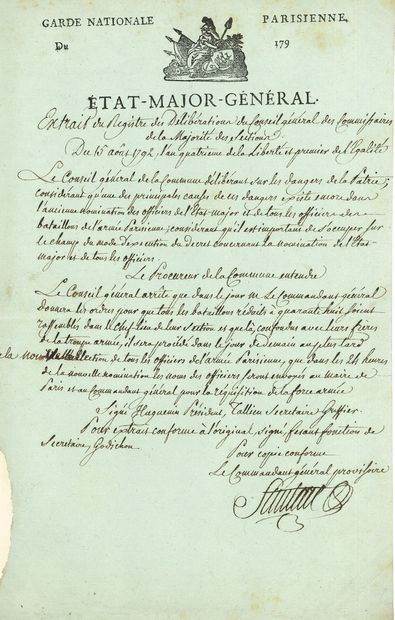 GARDE NATIONALE PARISIENNE,
Du 179
ÉTAT-MAJOR-GÉNÉRAL.
Extrait du Registre des Délibérations du Conseil général des Commissaires
de la Majorité des Sections
Du 15 août 1792, l'an quatrieme de la Liberté et premier de l'Egalité
Le Conseil général de la Commune déliberant sur les dangers de la Patrie;
considerant qu'une des principales causes de ces dangers existe encore dans
l'ancienne nomination des officiers de l'Etat major et de tous les officiers des
bataillons de l'armée Parisienne; considerant qu'il est important de s'occuper sur
le champ du mode d'execution du decret concernant la nomination de l'Etat
major et de tous les officiers
Le Procureur de la Commune entendu
Le Conseil général arrête que dans le jour M. Le Commandant général
donnera les ordres pour que tous les bataillons réduits à quarante huit soient
rassemblés dans le Chef lieu de leur Section et que là, confondus avec leurs freres
de la troupe armée, il sera procédé dans le jour de demain au plus tard
à la nouvelle Election de tous les officiers de l'armée Parisienne, que dans les 24 heures
de la nouvelle nomination les noms des officiers seront envoyés au maire de
Paris et au Commandant général pour la réquisition de la force armée
Signé Huguenin Président, Tallien Secretaire Greffier
Pour extrait conforme à l'original, signé fesant fonction de
Secretaire, Godichon
Pour copie conforme
Le Commandant général provisoire
Santerre